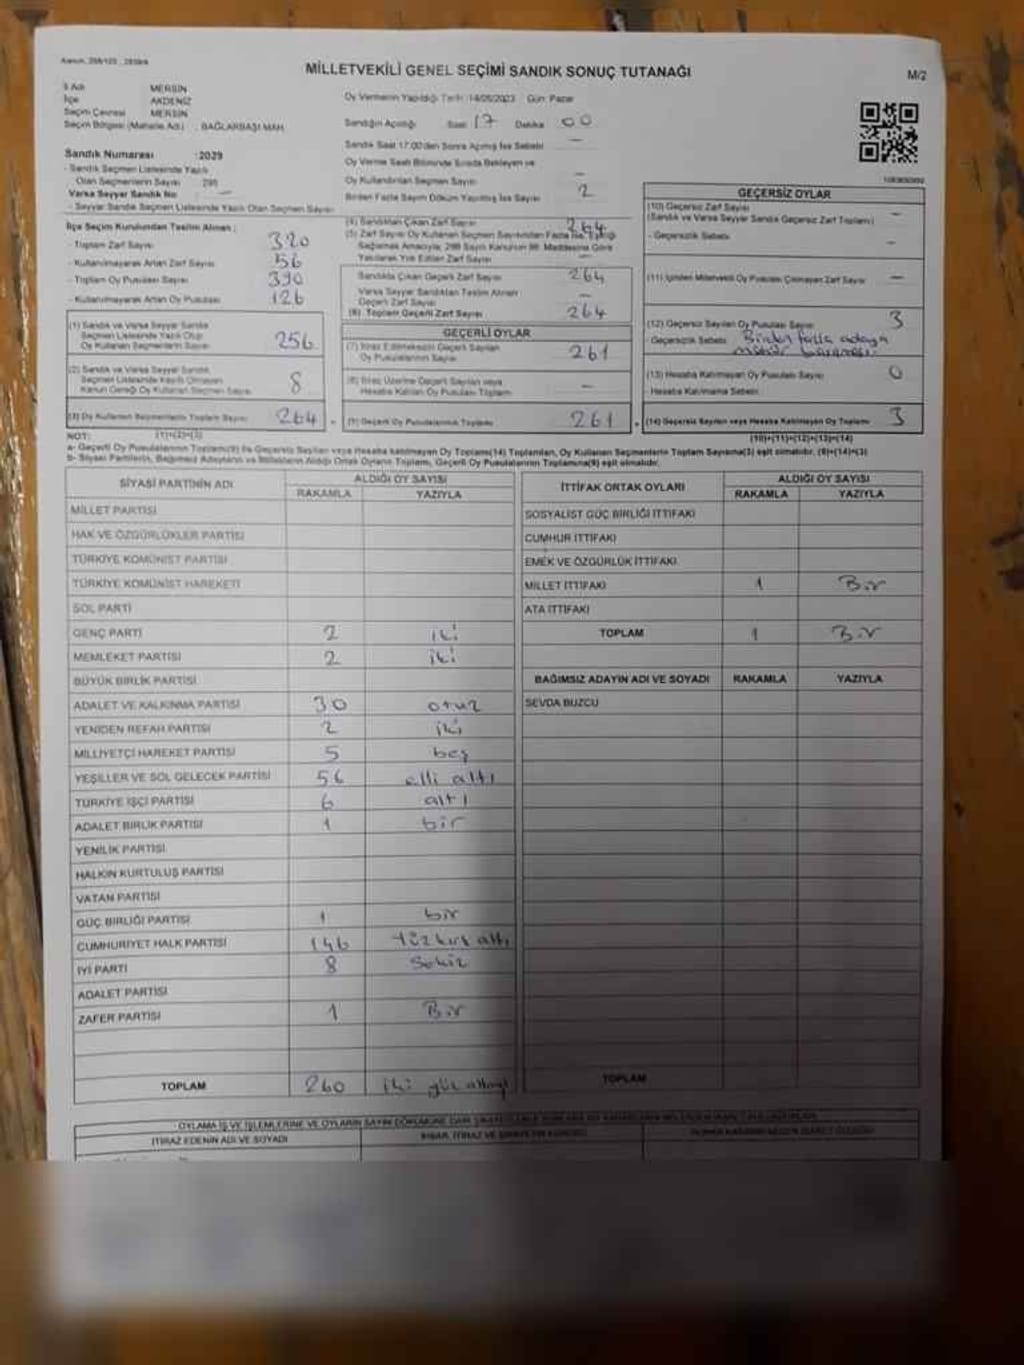 MİLLETVEKİLİ GENEL SEÇİMİ SANDIK SONUÇ TUTANAĞI
M/2
İl Adı MERSİN
İlçe AKDENİZ
Seçim Çevresi MERSİN
Seçim Bölgesi (Mahalle Adı) : BAĞLARBAŞI MAH.
Sandık Numarası :2029
- Sandık Seçmen Listesinde Yazılı
Olan Seçmenlerin Sayısı : 295
Varsa Seyyar Sandık No : —
- Seyyar Sandık Seçmen Listesinde Yazılı Olan Seçmen Sayısı
Oy Vermenin Yapıldığı Tarih :14/05/2023 Gün: Pazar
Sandığın Açıldığı Saat 17 Dakika 00
Sandık Saat 17:00'den Sonra Açılmış İse Sebebi —
Oy Verme Saati Bitiminde Sırada Bekleyen ve
Oy Kullandırılan Seçmen Sayısı —
Birden Fazla Sayım Döküm Yapılmış İse Sayısı 2
İlçe Seçim Kurulundan Teslim Alınan :
- Toplam Zarf Sayısı 320
- Kullanılmayarak Artan Zarf Sayısı 56
- Toplam Oy Pusulası Sayısı 390
- Kullanılmayarak Artan Oy Pusulası 126
(1) Sandık ve Varsa Seyyar Sandık
Seçmen Listesinde Yazılı Olup
Oy Kullanan Seçmenlerin Sayısı 256
(2) Sandık ve Varsa Seyyar Sandık
Seçmen Listesinde Kayıtlı Olmayan
Kanun Gereği Oy Kullanan Seçmen Sayısı 8
(3) Oy Kullanan Seçmenlerin Toplam Sayısı 264
(1)+(2)=(3)
(4) Sandıktan Çıkan Zarf Sayısı 264
(5) Zarf Sayısı Oy Kullanan Seçmen Sayısından Fazla İse, Eşitliği
Sağlamak Amacıyla; 298 Sayılı Kanunun 98. Maddesine Göre
Yakılarak Yok Edilen Zarf Sayısı —
Sandıkta Çıkan Geçerli Zarf Sayısı 264
Varsa Seyyar Sandıktan Teslim Alınan
Geçerli Zarf Sayısı —
(6) Toplam Geçerli Zarf Sayısı 264
GEÇERLİ OYLAR
(7) İtiraz Edilmeksizin Geçerli Sayılan
Oy Pusulalarının Sayısı 261
(8) İtiraz Üzerine Geçerli Sayılan veya
Hesaba Katılan Oy Pusulaları Toplamı —
(9) Geçerli Oy Pusulalarının Toplamı 261
GEÇERSİZ OYLAR
(10) Geçersiz Zarf Sayısı
(Sandık ve Varsa Seyyar Sandık Geçersiz Zarf Toplamı) —
- Geçersizlik Sebebi: —
(11) İçinden Milletvekili Oy Pusulası Çıkmayan Zarf Sayısı —
(12) Geçersiz Sayılan Oy Pusulası Sayısı 3
Geçersizlik Sebebi Birden fazla adaya
mühür basılması.
(13) Hesaba Katılmayan Oy Pusulası Sayısı 0
Hesaba Katılmama Sebebi
(14) Geçersiz Sayılan veya Hesaba Katılmayan Oy Toplamı 3
(10)+(11)+(12)+(13)=(14)
NOT:
a- Geçerli Oy Pusulalarının Toplamı(9) ile Geçersiz Sayılan veya Hesaba katılmayan Oy Toplamı(14) Toplamları, Oy Kullanan Seçmenlerin Toplam Sayısına(3) eşit olmalıdır. (9)+(14)=(3)
b- Siyasi Partilerin, Bağımsız Adayların ve İttifakların Aldığı Ortak Oyların Toplamı, Geçerli Oy Pusulalarının Toplamına(9) eşit olmalıdır.
SİYASİ PARTİNİN ADI ALDIĞI OY SAYISI
RAKAMLA YAZIYLA
MİLLET PARTİSİ
HAK VE ÖZGÜRLÜKLER PARTİSİ
TÜRKİYE KOMÜNİST PARTİSİ
TÜRKİYE KOMÜNİST HAREKETİ
SOL PARTİ
GENÇ PARTİ 2 iki
MEMLEKET PARTİSİ 2 iki
BÜYÜK BİRLİK PARTİSİ
ADALET VE KALKINMA PARTİSİ 30 otuz
YENİDEN REFAH PARTİSİ 2 iki
MİLLİYETÇİ HAREKET PARTİSİ 5 beş
YEŞİLLER VE SOL GELECEK PARTİSİ 56 elli altı
TÜRKİYE İŞÇİ PARTİSİ 6 altı
ADALET BİRLİK PARTİSİ 1 bir
YENİLİK PARTİSİ
HALKIN KURTULUŞ PARTİSİ
VATAN PARTİSİ
GÜÇ BİRLİĞİ PARTİSİ 1 bir
CUMHURİYET HALK PARTİSİ 146 yüz kırk altı
İYİ PARTİ 8 Sekiz
ADALET PARTİSİ
ZAFER PARTİSİ 1 Bir
TOPLAM 260 iki yüz altmış
İTTİFAK ORTAK OYLARI ALDIĞI OY SAYISI
RAKAMLA YAZIYLA
SOSYALİST GÜÇ BİRLİĞİ İTTİFAKI
CUMHUR İTTİFAKI
EMEK VE ÖZGÜRLÜK İTTİFAKI
MİLLET İTTİFAKI 1 Bir
ATA İTTİFAKI
TOPLAM 1 Bir
BAĞIMSIZ ADAYIN ADI VE SOYADI RAKAMLA YAZIYLA
SEVDA BUZCU
TOPLAM
OYLAMA İŞ VE İŞLEMLERİNE VE OYLARIN SAYIM DÖKÜMÜNE DAİR
İTİRAZ EDENİN ADI VE SOYADI